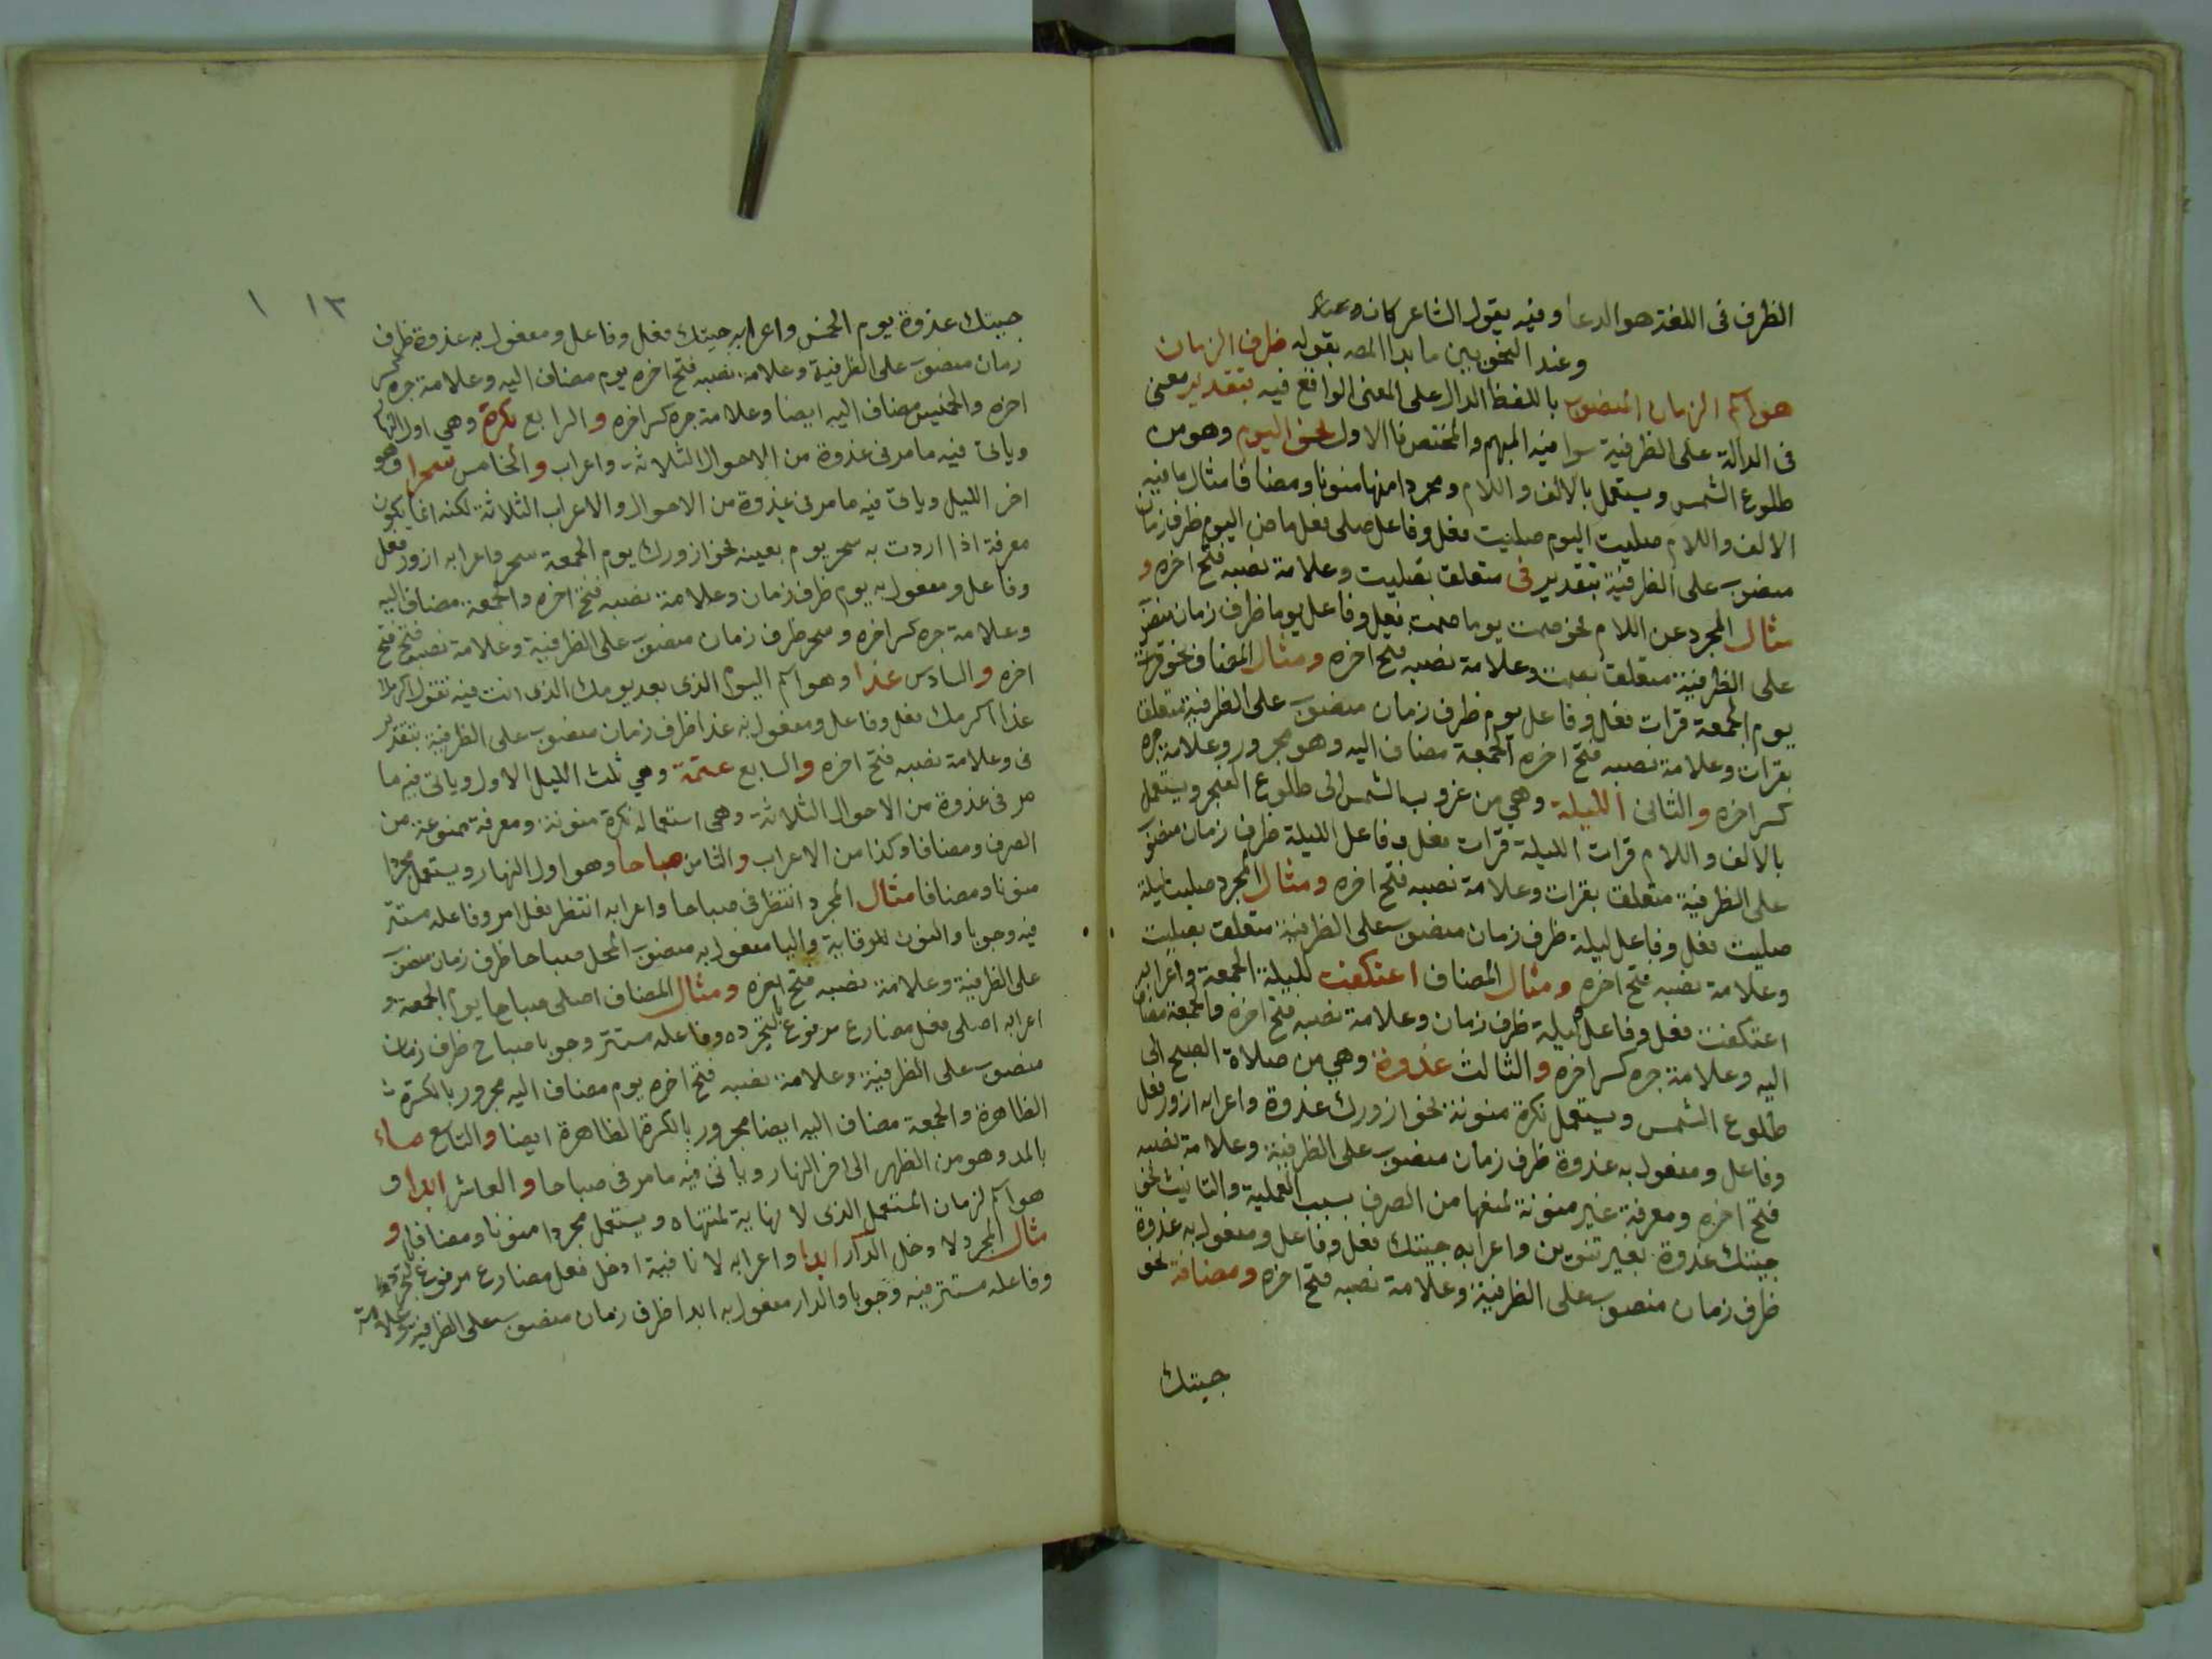 الظرف فى اللغة هو الدعا وفيه يقول الشاعر كان وعاء
وعند النحويين ما بدا المصه بقوله ظرف الزمان
هو اسم الزمان المنصوب باللفظ الدال على المعنى الواقع فيه بتقدير معنى
فى الدالة على الظرفية سوا فيه المبهم والمختص فالاول نحو اليوم وهو من
طلوع الشمس ويستعمل بالالف واللام ومجردا منها منونا ومضافا مثال ما فيه
الالف واللام صليت اليوم صليت فعل وفاعل صلى فعل ماض اليوم ظرف زمان
منصوب على الظرفية بتقدير فى متعلق بصليت وعلامة نصبه فتح اخره و
مثال المجرد عن اللام نحو صمت يوما صمت فعل وفاعل يوما ظرف زمان منصوب
على الظرفية متعلق بصمت وعلامة نصبه فتح اخره ومثال المضاف نحو قرات
يوم الجمعة قرات فعل وفاعل يوم ظرف زمان منصوب على الظرفية متعلق
بقرات وعلامة نصبه فتح اخره الجمعة مضاف اليه وهو مجرور وعلامة جره
كسر اخره والثانى الليلة وهي من غروب الشمس الى طلوع الفجر ويستعمل
بالالف واللام قرات الليلة قرات فعل وفاعل الليلة ظرف زمان منصوب
على الظرفية متعلق بقرات وعلامة نصبه فتح اخره ومثال المجرد صليت ليلة
صليت فعل وفاعل ليلة ظرف زمان منصوب على الظرفية متعلق بصليت
وعلامة نصبه فتح اخره ومثال المضاف اعتكفت لليلة الجمعة واعرابه
اعتكفت فعل وفاعل وليلة ظرف زمان وعلامة نصبه فتح اخره والجمعة مضاف
اليه وعلامة جره كسر اخره والثالث غدوة وهي من صلاة الصبح الى
طلوع الشمس ويستعمل نكرة منونة نحو ازورك غدوة واعرابه ازور فعل
وفاعل ومفعول به غدوة ظرف زمان منصوب على الظرفية وعلامة نصبه
فتح اخره ومعرفة غير منونة لمنعها من الصرف بسبب العملية والتانيث نحو
جيتك غدوة بغير تنوين واعرابه جيتك فعل وفاعل ومفعول به غدوة
ظرف زمان منصوب على الظرفية وعلامة نصبه فتح اخره ومضافة نحو
جيتك
١٣ ١
جيتك غدوة يوم الخمس واعرابه جيتك فعل وفاعل ومفعول به غدوة ظرف
زمان منصوب على الظرفية وعلامة نصبه فتح اخره يوم مضاف اليه وعلامة جره كسر
اخره والخميس مضاف اليه ايضا وعلامة جره كسر اخره والرابع بكرة وهي اول النهار
وياتى فيه ما مر فى غدوة من الاحوال الثلاثة واعراب والخامس سحرا وهو
اخر الليل وياتى فيه ما مر فى غدوة من الاحوال والاعراب الثلاثة لكنه انما يكون
معرفة اذا اردت به سحر يوم بعينه نحو ازورك يوم الجمعة سحر واعرابه ازور فعل
وفاعل ومفعول به يوم ظرف زمان وعلامة نصبه فتح اخره والجمعة مضاف اليه
وعلامة جره كسر اخره وسحر ظرف زمان منصوب على الظرفية وعلامة نصبه فتح فتح
اخره والسادس غدا وهو اسم اليوم الذى بعد يومك الذى انت فيه تقول اكرمك
غدا اكرمك فعل وفاعل ومفعول به غدا ظرف زمان منصوب على الظرفية بتقدير
فى وعلامة نصبه فتح اخره والسابع عتمة وهي ثلث الليل الاول وياتى فيه ما
مر فى غدوة من الاحوال الثلاثة وهي استعماله نكرة منونة ومعرفة ممنوعة من
الصرف ومضافا وكذا من الاعراب والثامن صباحا وهو اول النهار ويستعمل مجردا
منونا ومضافا مثال المجرد انتظرنى صباحا واعرابه انتظر فعل امر وفاعله مستتر
فيه وجوبا والنون للوقاية واليا مفعول به منصوب المحل صباحا ظرف زمان منصوب
على الظرفية وعلامة نصبه فتح اخره ومثال المضاف اصلى صباحا يوم الجمعة و
اعرابه اصلى فعل مضارع مرفوع لتجرده وفاعله مستتر وجوبا صباح ظرف زمان
منصوب على الظرفية وعلامة نصبه فتح اخره يوم مضاف اليه مجرور بالكسرة
الظاهرة والجمعة مضاف اليه ايضا مجرور بالكسرة الظاهرة ايضا والتاسع مساء
بالمد وهو من الظهر الى اخر النهار وياتى فيه ما مر فى صباحا والعاشر ابدا و
هو اسم لزمان المستقبل الذى لا نهاية لمنتهاه ويستعمل مجردا منونا ومضافا و
مثال المجرد لا دخل الدار ابدا واعرابه لا نافية ادخل فعل مضارع مرفوع لتجرده
وفاعله مستتر فيه وجوبا والدار مفعول به ابدا ظرف زمان منصوب على الظرفية وعلامة